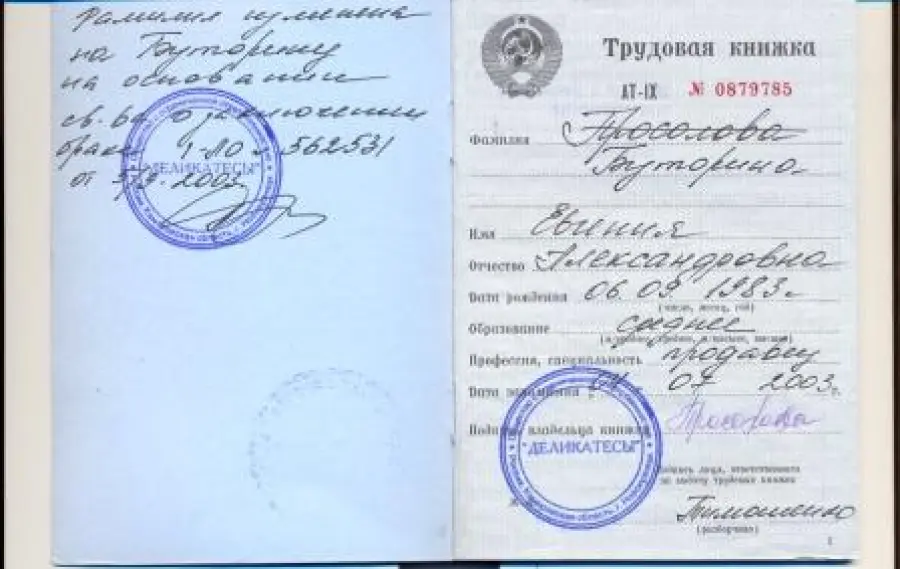 Фамилия изменена
на Буторину
на основании
св-ва о заключении
брака I-ЛО № 562531
от 5/9. 2003г
"ДЕЛИКАТЕСЫ"
Трудовая книжка
АТ-IX № 0879785
Фамилия Просолова
Буторина
Имя Евгения
Отчество Александровна
Дата рождения 06. 09. 1983г
(число, месяц, год)
Образование среднее
Профессия, специальность продавец
Дата заполнения 07 2003 г.
Подпись владельца книжки
"ДЕЛИКАТЕСЫ"
Подпись лица, ответственного
за выдачу трудовых книжек
Тимошенко
(разборчиво)
1